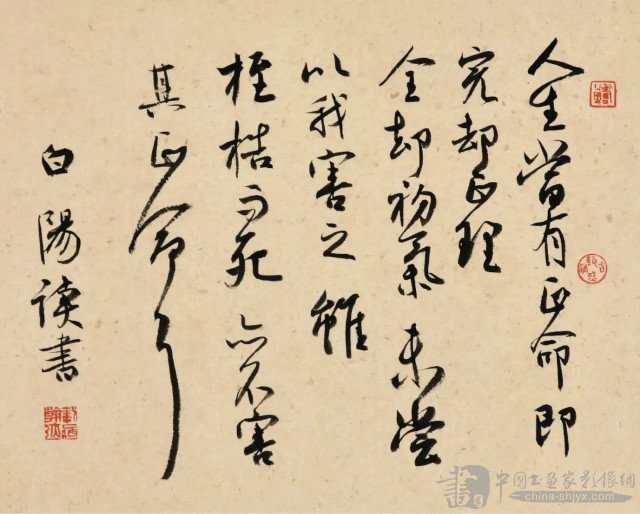 人生當有正命即
完却正理
全却初氣未嘗
以我害之雖
桎梏而死亦不害
其正命
白陽读書
書
中國书畫家影像網
china-shjyx.com